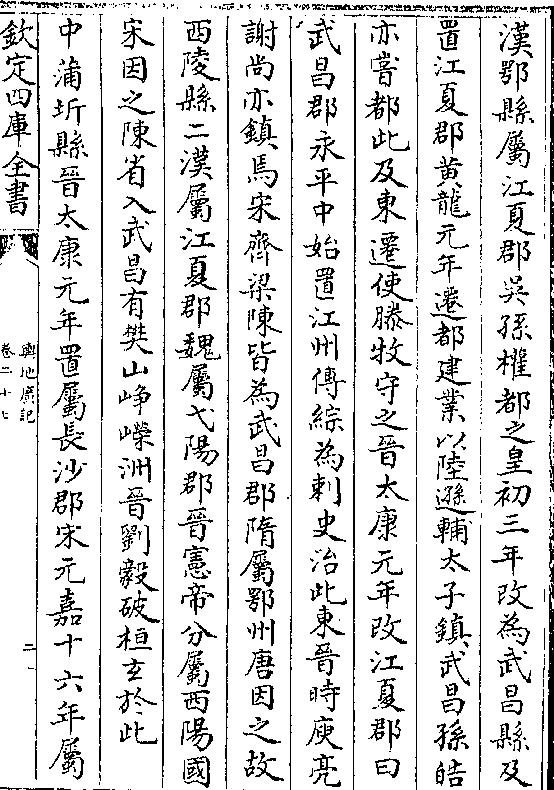 漢鄂縣屬江夏郡吳孫權都之皇初三年改為武昌縣及
置江夏郡黄龍元年遷都建業以陸遜輔太子鎮武昌孫皓
亦嘗都此及東遷使滕牧守之晉太康元年改江夏郡曰
武昌郡永平中始置江州傅綜為刺史治此東晉時庾亮
謝尚亦鎮焉宋齊梁陳皆為武昌郡隋屬鄂州唐因之故
西陵縣二漢屬江夏郡魏屬弋陽郡晉惠帝分屬西陽國
宋因之陳省入武昌有樊山崢嶸洲晉劉毅破桓玄於此
中蒲圻縣晉太康元年置屬長沙郡宋元嘉十六年屬
欽定四庫全書
輿地廣記
卷二十七
二